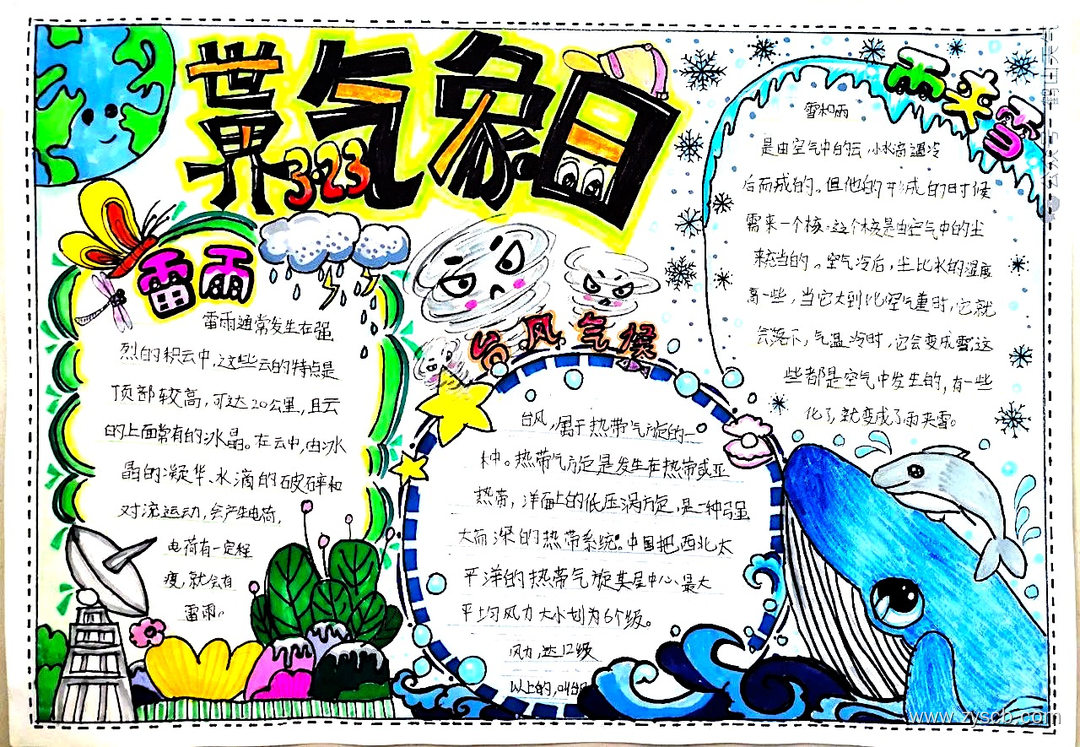 世界气象日
3·23
雷雨
雷雨通常发生在强
烈的积云中,这些云的特点是
顶部较高,可达20公里,且云
的上面常有的冰晶。在云中,由冰
晶的凝华、水滴的破碎和
对流运动,会产生电荷,
电荷有一定程
度,就会有
雷雨。
台风气候
台风,属于热带气旋的一
种。热带气旋是发生在热带或亚
热带,洋面上的低压涡旋,是一种强
大而深的热带系统。中国把西北太
平洋的热带气旋其星中心最大
平均风力大小划为6个级。
风力,达12级
以上的,叫
雨夹雪
雪和雨
是由空气中的云,小水滴遇冷
后而成的。但他的形成的时候
需来一个核,这个核是由空气中的尘
来充当的。空气冷后,尘比水的温度
高一些,当它大到比空气重时,它就
会落下,气温冷时,它会变成雪这
些都是空气中发生的,有一些
化了,就变成了雨夹雪。
www.zyscb.com